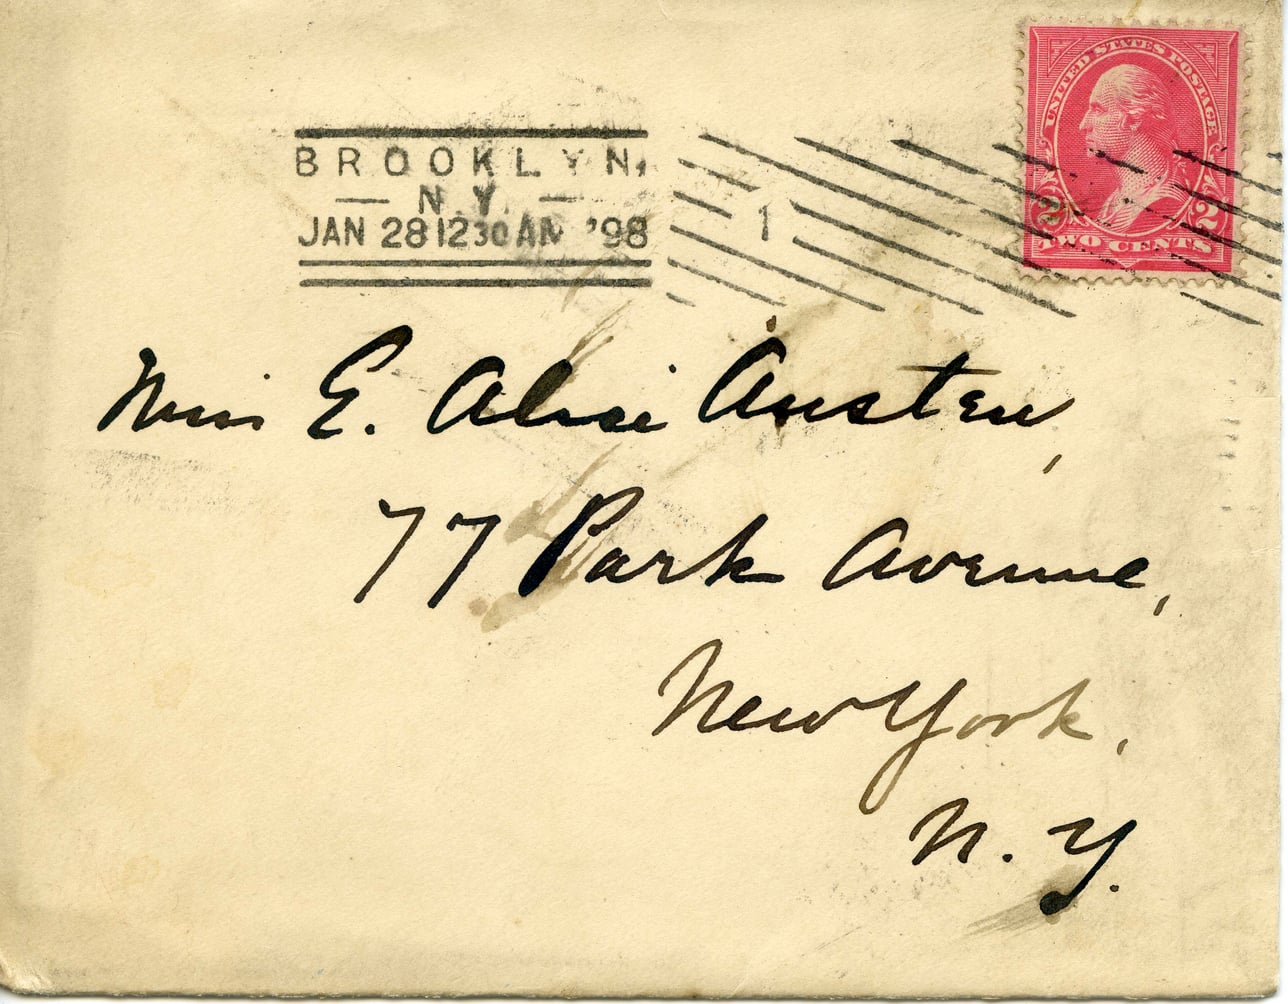 UNITED STATES POSTAGE
2 2
TWO CENTS
BROOKLYN,
— N.Y. —
JAN 28 1230 AM '98
1
Miss E. Alice Austen,
77 Park Avenue,
New York,
N. Y.